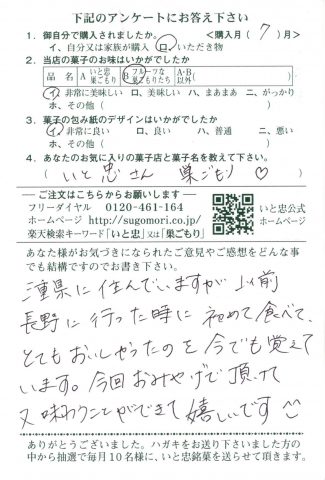 下記のアンケートにお答え下さい
1. 御自分で購入されましたか。 <購入月(7)月>
イ、自分又は家族が購入 ロ、いただき物
2. 当店の菓子のお味はいかがでしたか
品名 A いと忠巣ごもり B フルーツな巣ごもりたち A・B以外
イ、非常に美味しい ロ、美味しい ハ、まあまあ ニ、がっかり
ホ、その他( )
3. 菓子の包み紙のデザインはいかがでしたか
イ、非常に良い ロ、良い ハ、普通 ニ、悪い
ホ、その他( )
4. あなたのお気に入りの菓子店と菓子名を教えて下さい。
(いと忠さん 巣ごもり ♡)
ご注文はこちらからお願いします
フリーダイヤル 0120-461-164
ホームページ http://sugomori.co.jp/
楽天検索キーワード「いと忠」又は「巣ごもり」
いと忠公式
ホームページ
あなた様がお気づきになられたご意見やご感想をどんな事
でも結構ですのでお書き下さい。
三重県に住んでいますが 以前
長野に行った時に 初めて食べて、
とてもおいしかったのを今でも覚えて
います。今回おみやげで頂けて
又味わうことができて嬉しいです
ありがとうございました。ハガキをお送り下さいました方の
中から抽選で毎月10名様に、いと忠銘菓を送らせて頂きます。